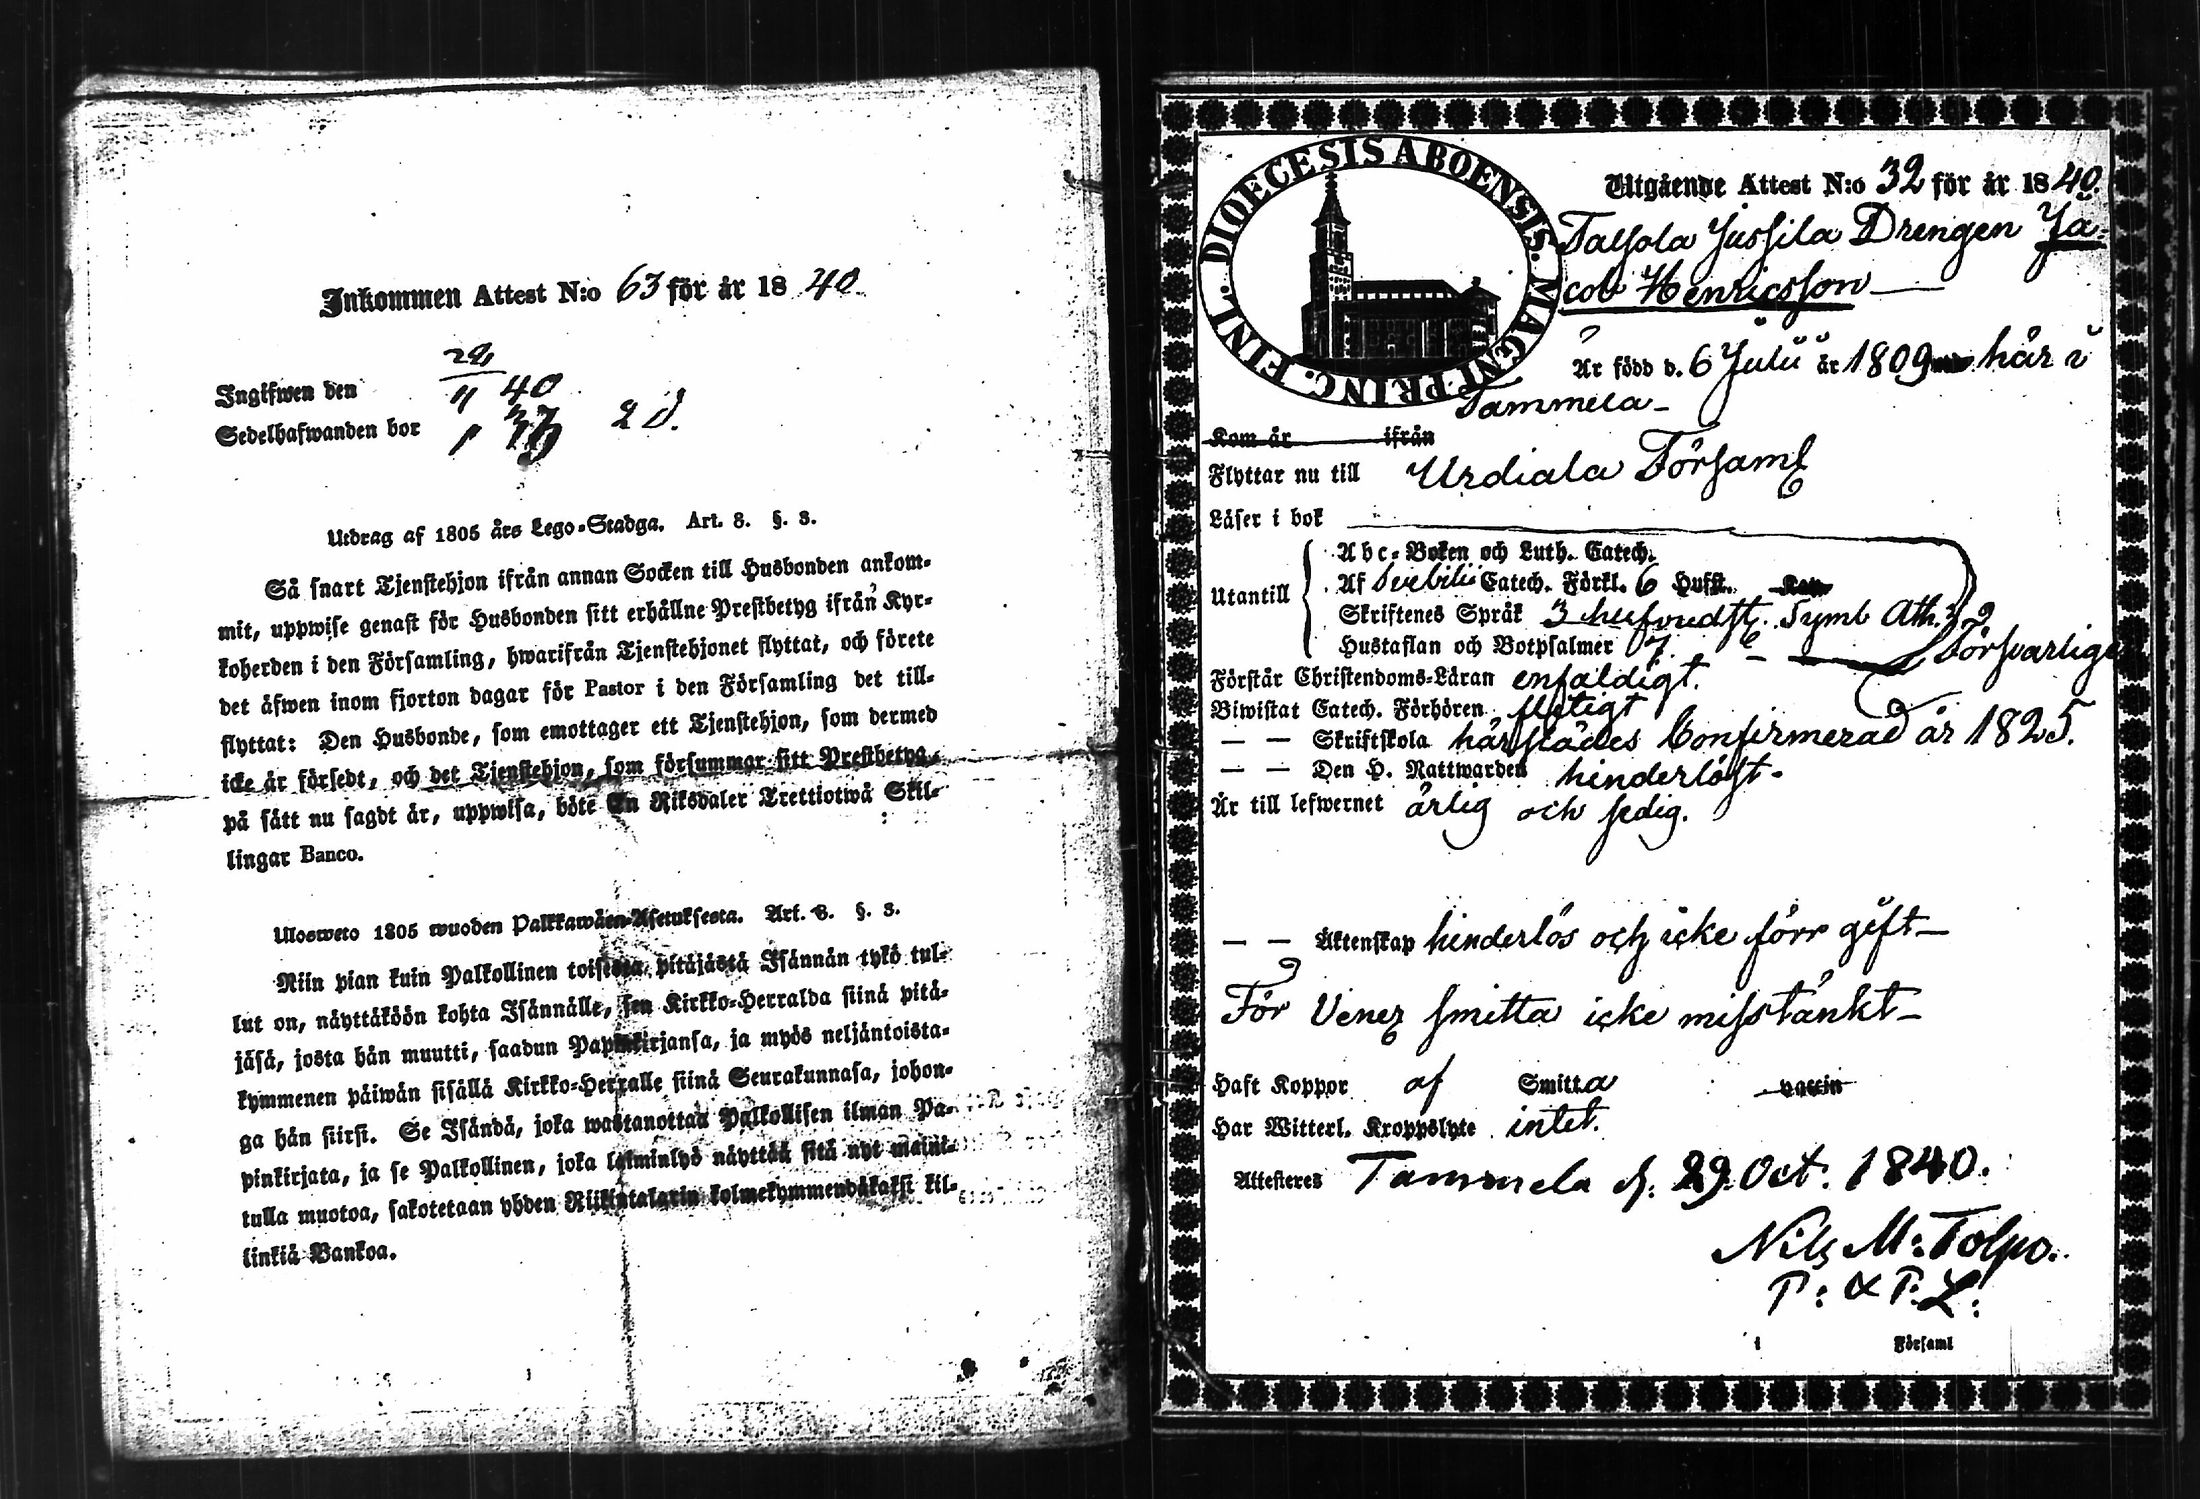 Inkommen Attest N:o 63 för år 1840
Ingifwen den 29/11 40
Sedelhafwanden bor
Utdrag af 1805 års Lego-Stadga. Art. 8. §. 3.
Så snart Tjenstehjon ifrån annan Socken till Husbonden ankom-
mit, uppwise genast för Husbonden sitt erhållne Prestbetyg ifrån Kyr-
koherden i den Församling, hwarifrån Tjenstehjonet flyttat, och förete
det äfwen inom fjorton dagar för Pastor i den Församling det till-
flyttat: Den Husbonde, som emottager ett Tjenstehjon, som dermed
icke är försedt, och det Tjenstehjon, som försummar sitt Prestbetyg,
på sätt nu sagdt är, uppwisa, böte En Riksdaler Trettiotwå Skil-
lingar Banco.
Ulosweto 1805 wuoden Palkkawäen-Asetuksesta. Art. 8. §. 3.
Niin pian kuin Palkollinen toisesta pitäjästä Isännän tykö tul-
lut on, näyttäköön kohta Isännälle, sen Kirkko-Herralda siinä pitä-
jäsä, josta hän muutti, saadun Papinkirjansa, ja myös neljäntoista-
kymmenen päiwän sisällä Kirkko-Herralle siinä Seurakunnasa, johon-
ga hän siirsi. Se Isändä, joka wastanottaa Palkollisen ilman Pa-
pinkirjata, ja se Palkollinen, joka laiminlyö näyttää sitä nyt maini-
tulla muotoa, sakotetaan yhden Riikintalarin kolmekymmendäkaksi kil-
linkiä Bankoa.
DIOECESIS ABOENSIS. MAGNI PRINC. FINL.
Utgående Attest N:o 32 för år 1840.
Jussila Drengen Ja-
cob Henricsson
Är född d. 6 Julii år 1809 här i
Tammela
Kom år ifrån
Flyttar nu till Urdiala Församl
Läser i bok
Utantill
Abc-Boken och Luth. Catech.
Af Svebilii Catech. Förkl. 6 Hufst.
Skriftenes Språk 3 hufvudst. Symb. Ath.
Hustaflan och Botpsalmer 7. Försvarligen
Förstår Christendoms-Läran enfaldigt.
Biwistat Catech. Förhören flitigt
— — Skriftskola härstädes Confirmerad år 1825.
— — Den H. Nattwarden hinderlöst.
Är till lefwernet ärlig och sedig.
— — Äktenskap hinderlös och icke förr gift
För Vener. smitta icke misstänkt
Haft Koppor af Smitta vaccin
Har Witterl. Kroppslyte intet.
Attesteres Tammela d. 29. Oct. 1840.
Nils M: Tolpo.
P: & P. L:
i Församl